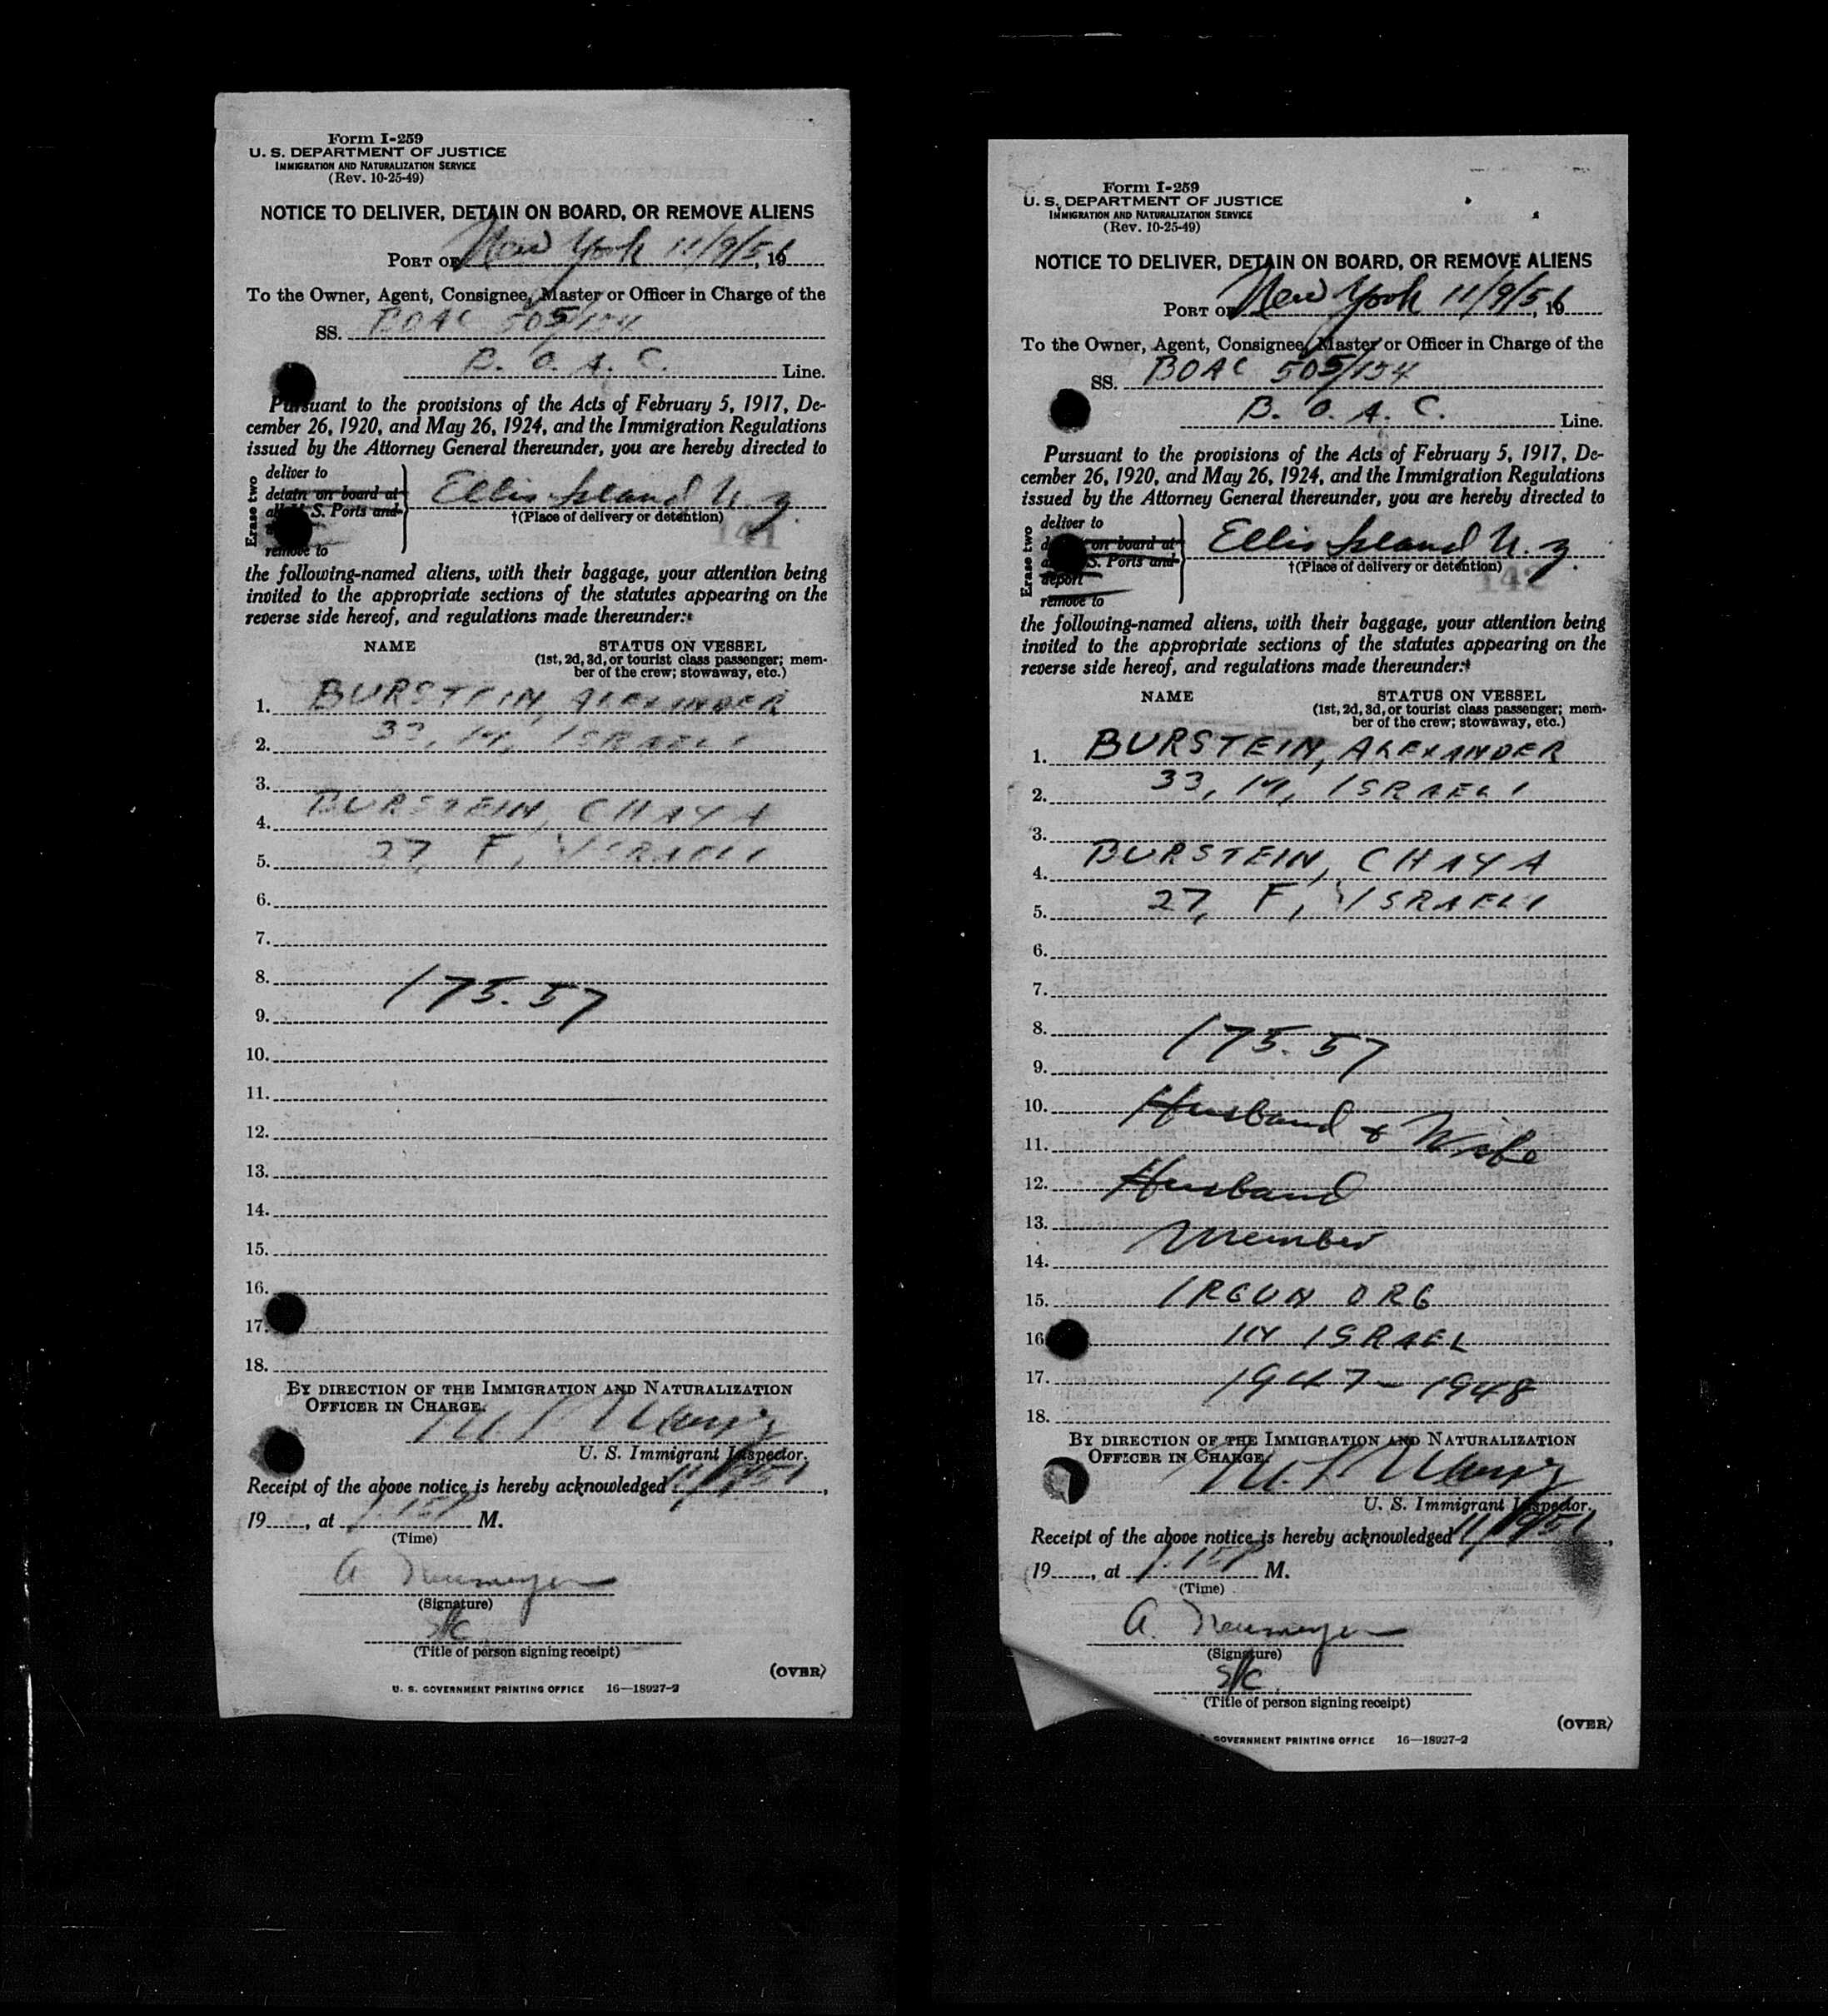 Form I-259
U. S. DEPARTMENT OF JUSTICE
IMMIGRATION AND NATURALIZATION SERVICE
(Rev. 10-25-49)
NOTICE TO DELIVER, DETAIN ON BOARD, OR REMOVE ALIENS
PORT OF New York 11/9/51, 19
To the Owner, Agent, Consignee, Master or Officer in Charge of the
SS. BOAC 505/154
B. O. A. C. Line.
Pursuant to the provisions of the Acts of February 5, 1917, De-
cember 26, 1920, and May 26, 1924, and the Immigration Regulations
issued by the Attorney General thereunder, you are hereby directed to
Erase two
deliver to
detain on board at
all U. S. Ports and
remove to
Ellis Island N.Y.
†(Place of delivery or detention)
141
the following-named aliens, with their baggage, your attention being
invited to the appropriate sections of the statutes appearing on the
reverse side hereof, and regulations made thereunder:
NAME STATUS ON VESSEL
(1st, 2d, 3d, or tourist class passenger; mem-
ber of the crew; stowaway, etc.)
1. BURSTEIN, ALEXANDER
2. 33, M, ISRAELI
3.
4. BURSTEIN, CHAYA
5. 27, F, ISRAELI
6.
7.
8.
9. 175.57
10.
11.
12.
13.
14.
15.
16.
17.
18.
BY DIRECTION OF THE IMMIGRATION AND NATURALIZATION
OFFICER IN CHARGE.
U. S. Immigrant Inspector.
Receipt of the above notice is hereby acknowledged 11/9/51,
19, at 1:15P M.
(Time)
A. Neumeyer
(Signature)
(Title of person signing receipt)
(OVER)
U. S. GOVERNMENT PRINTING OFFICE 16—18927-2
Form I-259
U. S. DEPARTMENT OF JUSTICE
IMMIGRATION AND NATURALIZATION SERVICE
(Rev. 10-25-49)
NOTICE TO DELIVER, DETAIN ON BOARD, OR REMOVE ALIENS
PORT OF New York 11/9/51, 19
To the Owner, Agent, Consignee, Master or Officer in Charge of the
SS. BOAC 505/154
B. O. A. C. Line.
Pursuant to the provisions of the Acts of February 5, 1917, De-
cember 26, 1920, and May 26, 1924, and the Immigration Regulations
issued by the Attorney General thereunder, you are hereby directed to
Erase two
deliver to
on board at
S. Ports and
deport
remove to
Ellis Island N.Y.
†(Place of delivery or detention)
142
the following-named aliens, with their baggage, your attention being
invited to the appropriate sections of the statutes appearing on the
reverse side hereof, and regulations made thereunder:
NAME STATUS ON VESSEL
(1st, 2d, 3d, or tourist class passenger; mem-
ber of the crew; stowaway, etc.)
1. BURSTEIN, ALEXANDER
2. 33, M, ISRAELI
3.
4. BURSTEIN, CHAYA
5. 27, F, ISRAELI
6.
7.
8.
9. 175.57
10. Husband & Wife
11.
12. Husband
13. Member
14.
15. IRGUN ORG
16. IN ISRAEL
17. 1947-1948
18.
BY DIRECTION OF THE IMMIGRATION AND NATURALIZATION
OFFICER IN CHARGE.
U. S. Immigrant Inspector.
Receipt of the above notice is hereby acknowledged 11/9/51,
19, at 1:15P M.
(Time)
A. Neumeyer
(Signature)
(Title of person signing receipt)
(OVER)
GOVERNMENT PRINTING OFFICE 16—18927-2